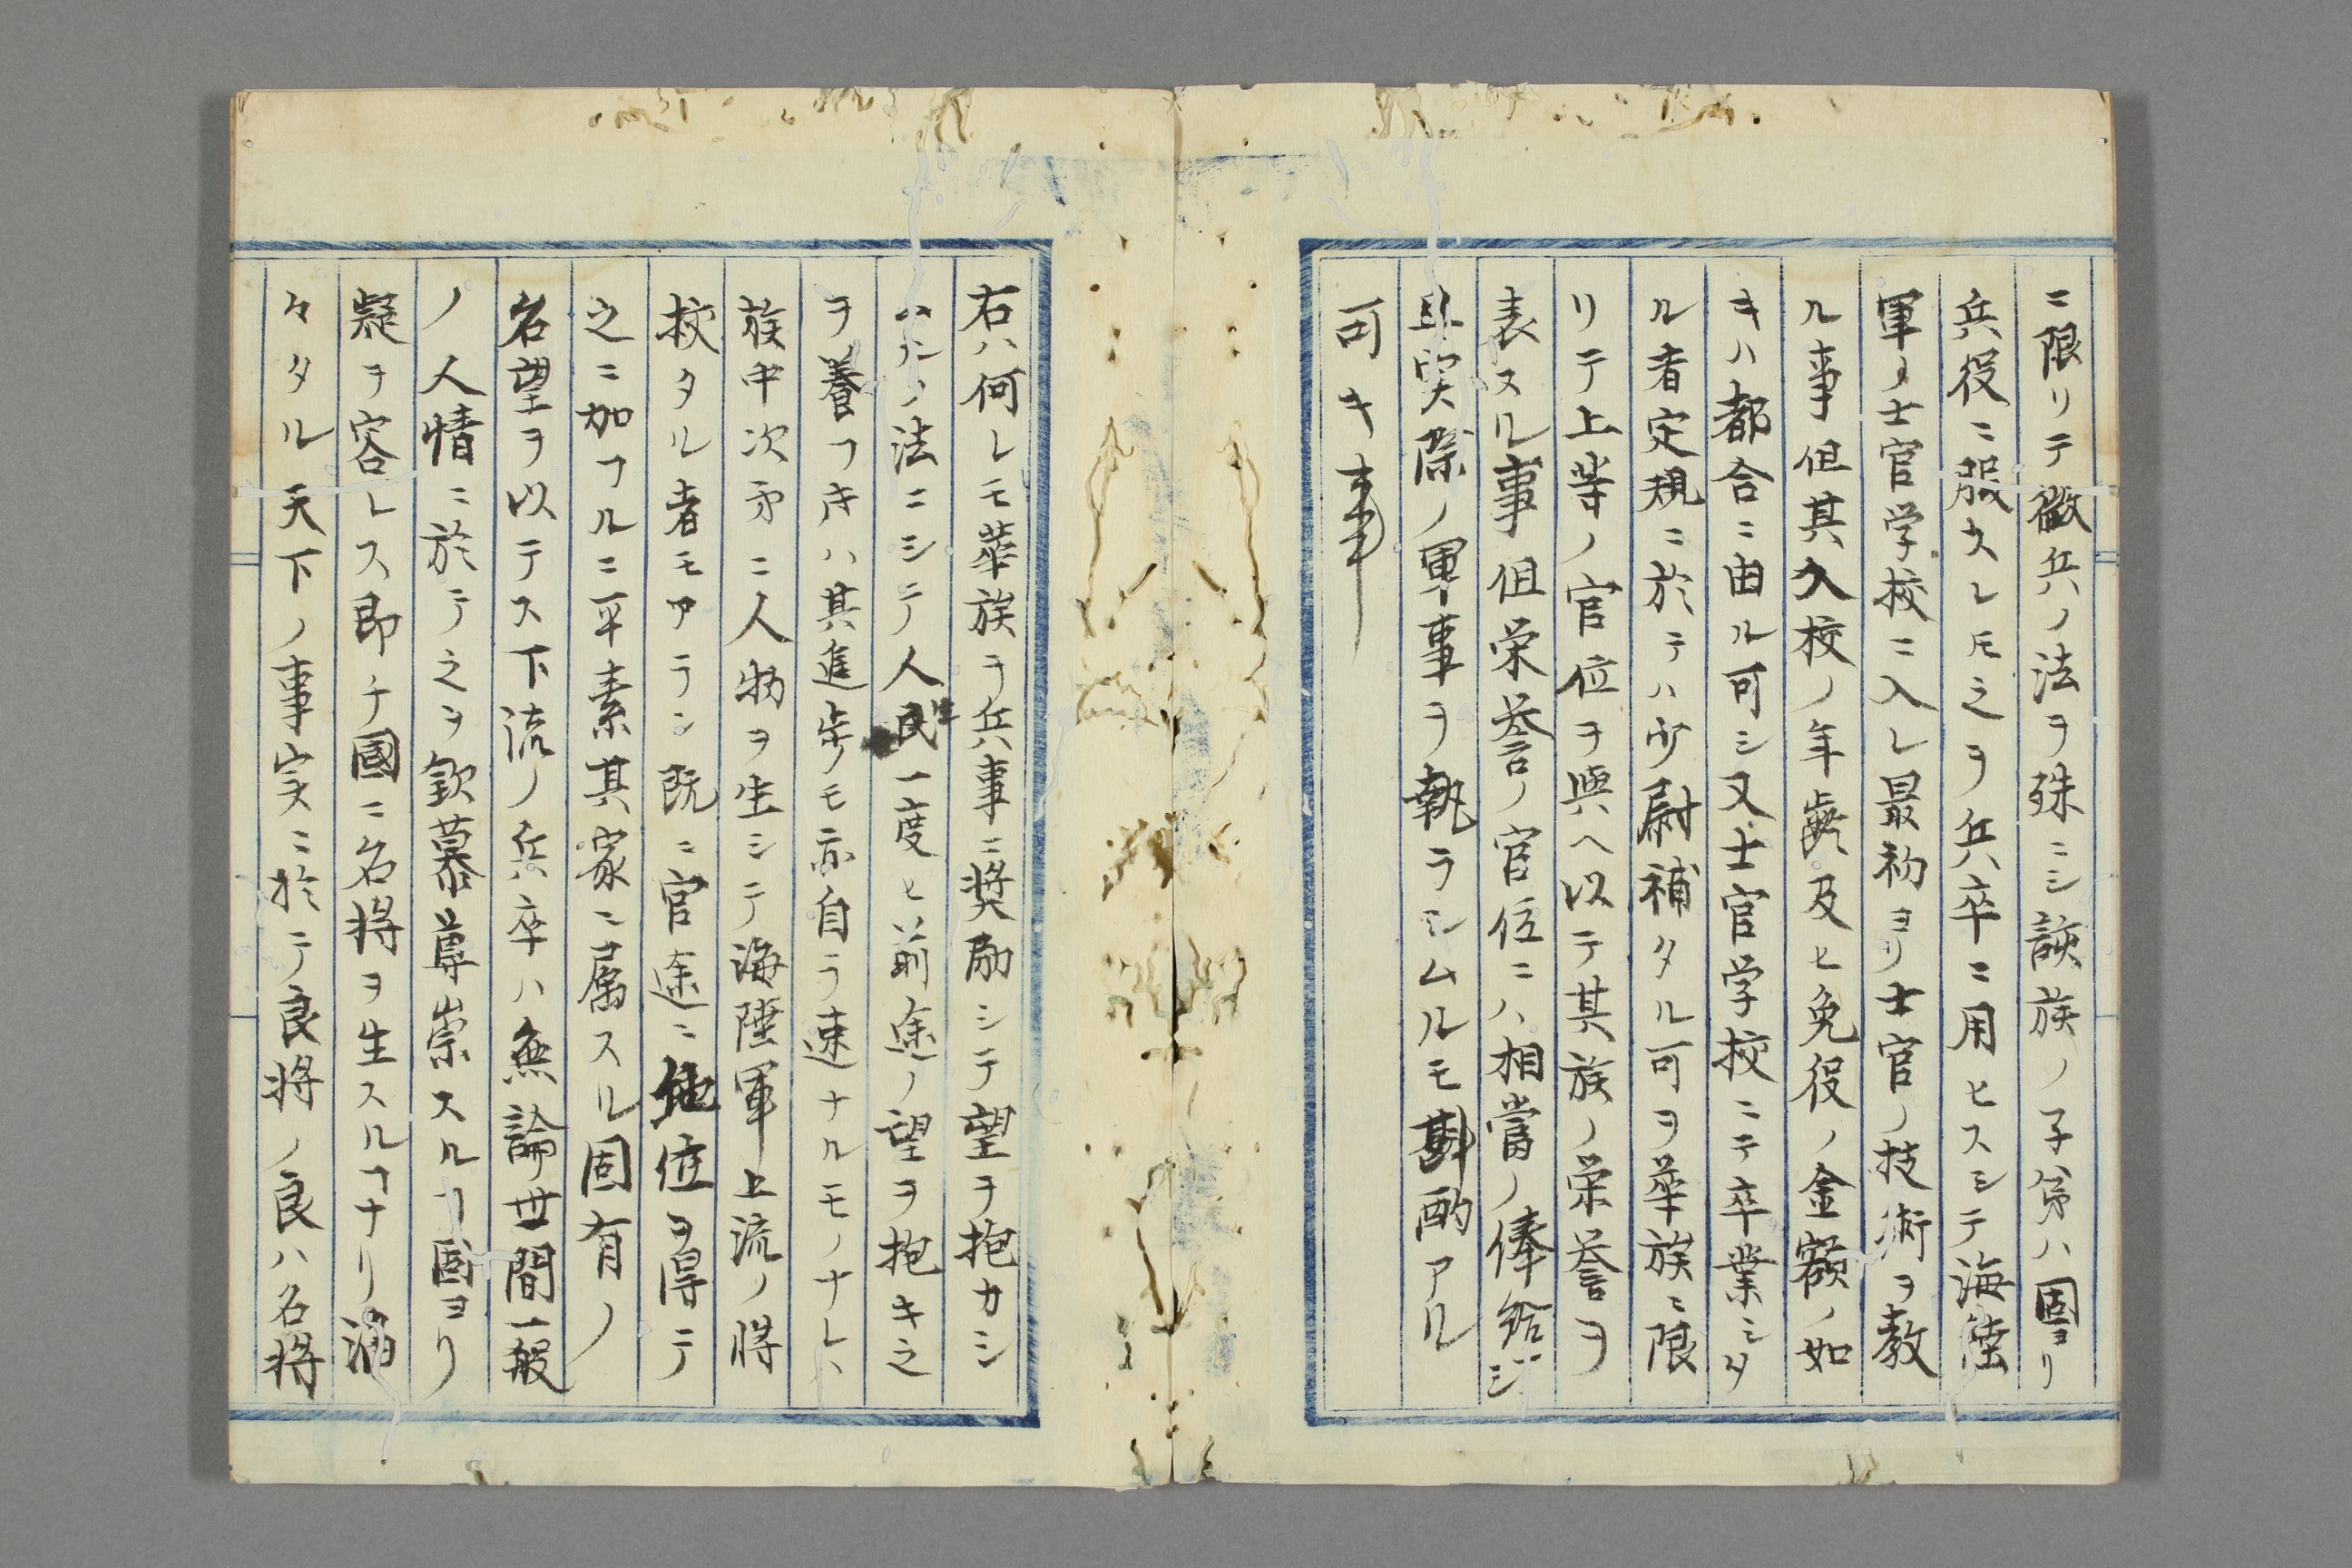 ニ限リテ徴兵ノ法ヲ殊ニシ該族ノ子弟ハ固ヨリ
兵役ニ服スレ𪜈之ヲ兵卒ニ用ヒスシテ海陸
軍ノ士官学校ニ入レ最初ヨリ士官ノ技術ヲ教
ル事但其入校ノ年齢及ヒ免役ノ金額ノ如
キハ都合ニ由ル可シ又士官学校ニテ卒業シタ
ル者定規ニ於テハ少尉補タル可ヲ華族ニ限
リテ上等ノ官位ヲ與ヘ以テ其族ノ栄誉ヲ
表スル事但栄誉ノ官位ニハ相當ノ俸給シ
且実際ノ軍事ヲ執ラシムルモ斟酌アル
可キ事
右ハ何レモ華族ヲ兵事ニ奨励シテ望ヲ抱カシ
ムルノ法ニシテ人民一度ヒ前途ノ望ヲ抱キ之
ヲ養フキハ其進歩モ亦自ラ速ナルモノナレハ
族中次第ニ人物ヲ生シテ海陸軍上流ノ将
校タル者モアラン既ニ官途ニ地位ヲ得テ
之ニ加フルニ平素其家ニ属スル固有ノ
名望ヲ以テス下流ノ兵卒ハ無論世間一般
ノ人情ニ於テ之ヲ欽慕尊崇スルヿ固ヨリ
疑ヲ容レス即チ國ニ名将ヲ生スルヿナリ滔
々タル天下ノ事実ニ於テ良将ノ良ハ名将